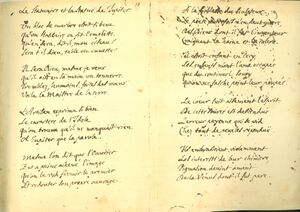 Le Statuaire et la Statue de Jupiter
Un bloc de marbre étoit si beau
Qu'un Statuaire en fit l'emplette.
Qu'en fera, dit-il, mon ciseau?
Sera-t'il Dieu, table ou cuvette?
Il sera Dieu, mesme je veux
Qu'il ait en sa main un tonnerre.
Tremblez, humains, faites des vœux
Voila le Maistre de la terre.
L'Artisan exprima si bien
Le caractere de l'Idole,
Qu'on trouva qu'il ne manquoit rien
A Jupiter que la parole.
Mesme l'on dit que l'Ouvrier
Eut à peine achevé l'image
Qu'on le vid fremir le premier
Et redouter son propre ouvrage.
A la foiblesse du Sculpteur
Le poete autrefois n'en dut guere
Des Dieux dont il fut l'inventeur
Craignant la haine et la colere.
Il étoit enfant en cecy
Les enfans n'ont l'ame occupée
Que du continuel soucy
Qu'on ne fasche point leur poupée.
Le cœur suit aisement l'esprit
De cette source est descendue
L'erreur payenne qui se vid
Chez tant de peuples repandue
Ils embrassoient violemment
Les interests de leur chimere.
Pigmalion devint amant
De la Venus dont il fut pere.